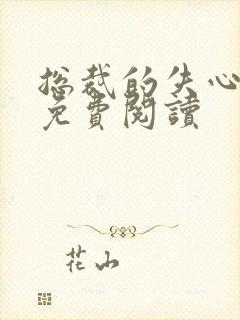 总裁的失心
免費閱讀
花山